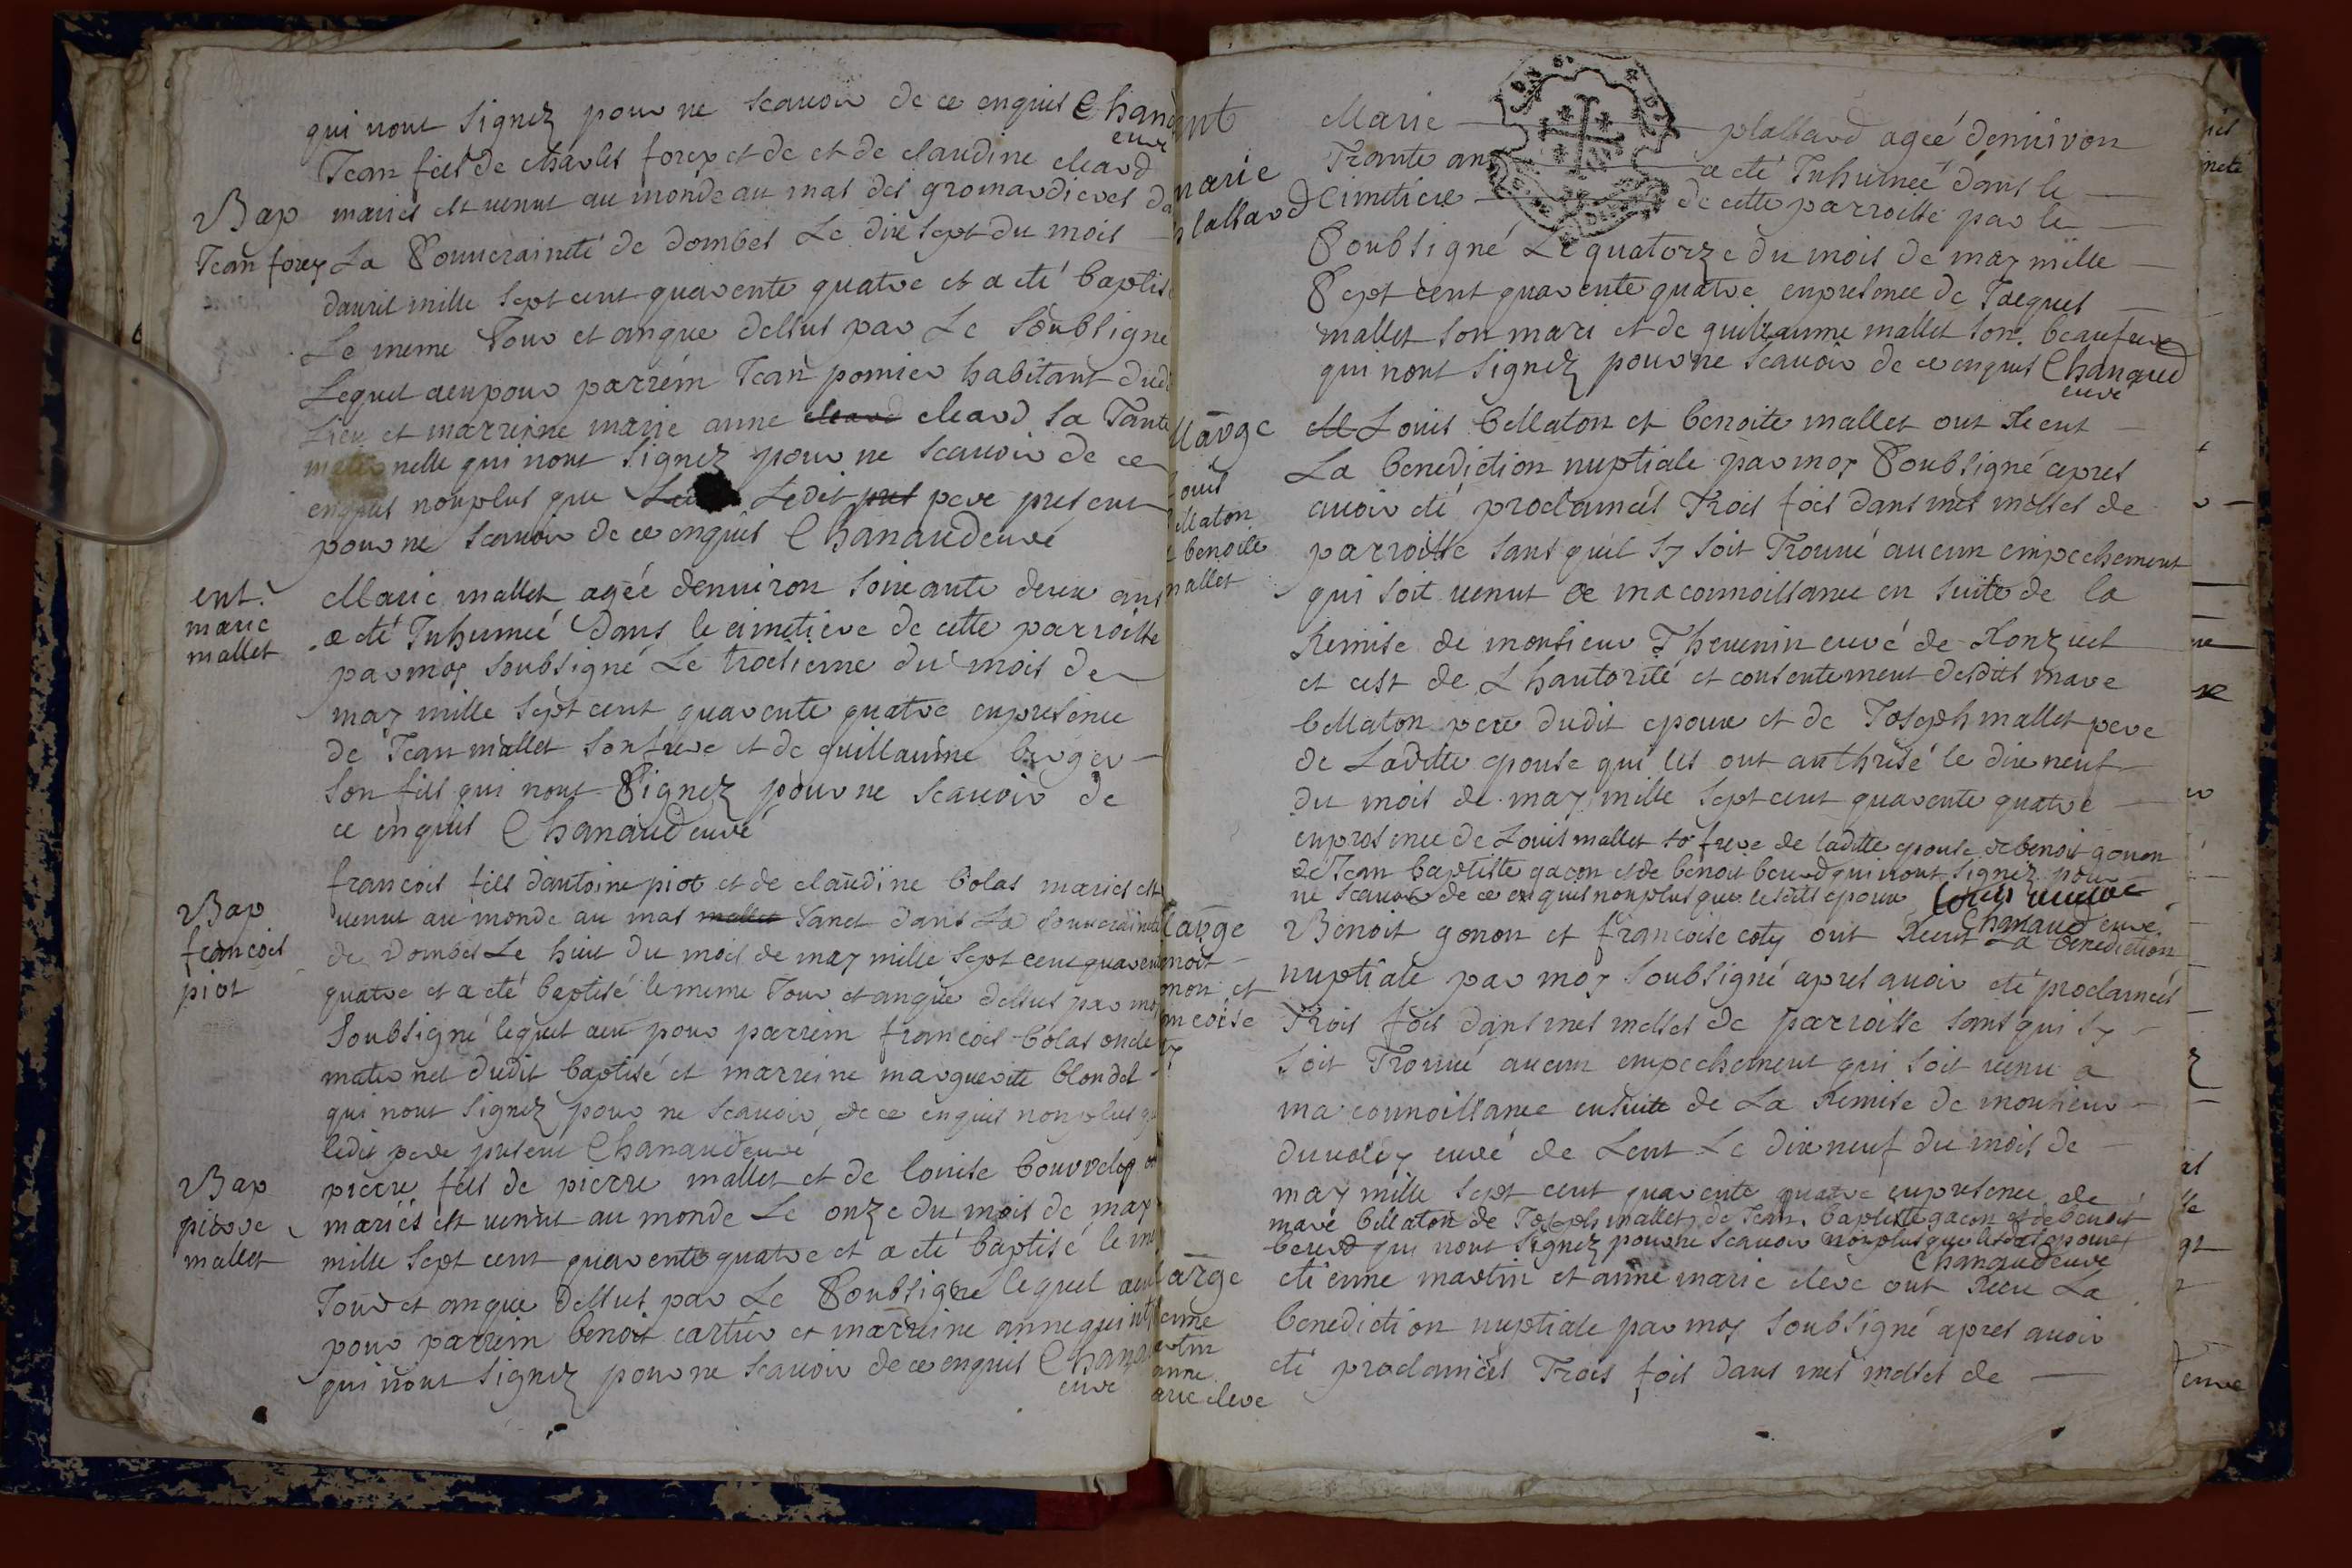 qui nont signez pour ne scauoir de ce enquis Chan
curé
Jean fils de charles forey et de et de claudine cleard
Bap
Jean forey
mariés est uenut au monde au mas des gromardieres da
La Souueraineté de dombes Le dix sept du mois
dauril mille sept cent quarente quatre et a eté baptisé
Le meme Jour et anque dessus par Le Soubsigne
Lequel aeu pour parrein Jean pomier habitant dud
Lieu et marreine marie anne cleard cleard sa Tante
maternelle qui nont signez pour ne scauoir de ce
enquis nonplus que Ledit pere present
pour ne scauoir de ce enquis Chanaud curé
ent.
marie
mallet
Marie mallet agée denuiron soixante deux ans
a eté Inhumeé dans le cimetiere de cette parroisse
par moy soubsigné Le troisieme du mois de
may mille sept cent quarente quatre enpresence
de Jean mallet son frere et de guillaume berger
son fils qui nont Signez pour ne scauoir de
ce enquis Chanaud curé
Bap
francois
piot
francois fils dantoine piot et de claudine bolas mariés est
uenut au monde au mas mallet Sanet dans La souueraineté
de Dombes Le huit du mois de may mille sept cent quarente
quatre et a eté baptisé le meme Jour et anque dessus par moy
Soubsigné lequel aeu pour parrein francois bolas oncle
maternel dudit baptisé et marreine marguerite blondel
qui nont signez pour ne scauoir de ce enquis nonplus que
ledit pere present Chanaud curé
Bap
pierre
mallet
pierre fils de pierre mallet et de louise bourdelop
mariés est uenut au monde Le onze du mois de may
mille sept cent quarente quatre et a eté baptisé le me
Jour et anque dessus par Le Soubsigne lequel aeu
pour parrein benoit cartier et marreine anne quint
qui nont signez pour ne scauoir de ce enquis Chana
curé
ent
marie
plattard
Marie plattard ageé denuiron
Trante ans a eté Inhumeé dans le
Cimetiere de cette parroisse par le
Soubsigné Le quatorze du mois de may mille
Sept cent quarente quatre enpresence de Jacques
mallet son mari et de guillaume mallet son beaufrere
qui nont signez pour ne scauoir de ce enquis Chanaud
curé
Marge
Louis
bellaton
benoite
mallet
M Louis bellaton et benoite mallet ont Receut
La benediction nuptiale par moy Soubsigné apres
auoir eté proclamés Trois fois dans mes messes de
parroisse sans quil sy soit Trouué aucun empechement
qui soit uenut a ma connoissance en suite de la
Remise de monsieur Theuenin curé de Ronzuel
et cest de Lhautorité et consentement desdits mare
bellaton pere dudit epoux et de Joseph mallet pere
de Laditte epouse qui les ont authrisé le dixneuf
du mois de may mille sept cent quarente quatre
enpresence de Louis mallet frere de laditte epouse de benoit gonon
de Jean baptiste gacon et de benoit bererd qui nont signez pour
ne scauoir de ce enquis nonplus que lesdits epoux
Chanaud curé
Marge
benoit
gonon et
francoise
coty
Benoit gonon et francoise coty ont Receut La benediction
nuptiale par moy soubsigné apres auoir eté proclamés
Trois fois dans mes messes de parroisse sans qui sy
soit Trouué aucun empechement qui soit uenu a
ma connoissance ensuite de La Remise de monsieur
duuoley curé de Lent Le dixneuf du mois de
may mille sept cent quarente quatre enpresence de
mare bellaton de Joseph mallet de Jean baptiste gacon et de benoit
bererd qui nont signez pour ne scauoir nonplus que lesdits epoux
Chanaud curé
Marge
etienne
martin
anne
marie clere
etienne martin et anne marie clere ont Receu La
benediction nuptiale par moy soubsigné apres auoir
eté proclamés Trois fois dans mes messes de